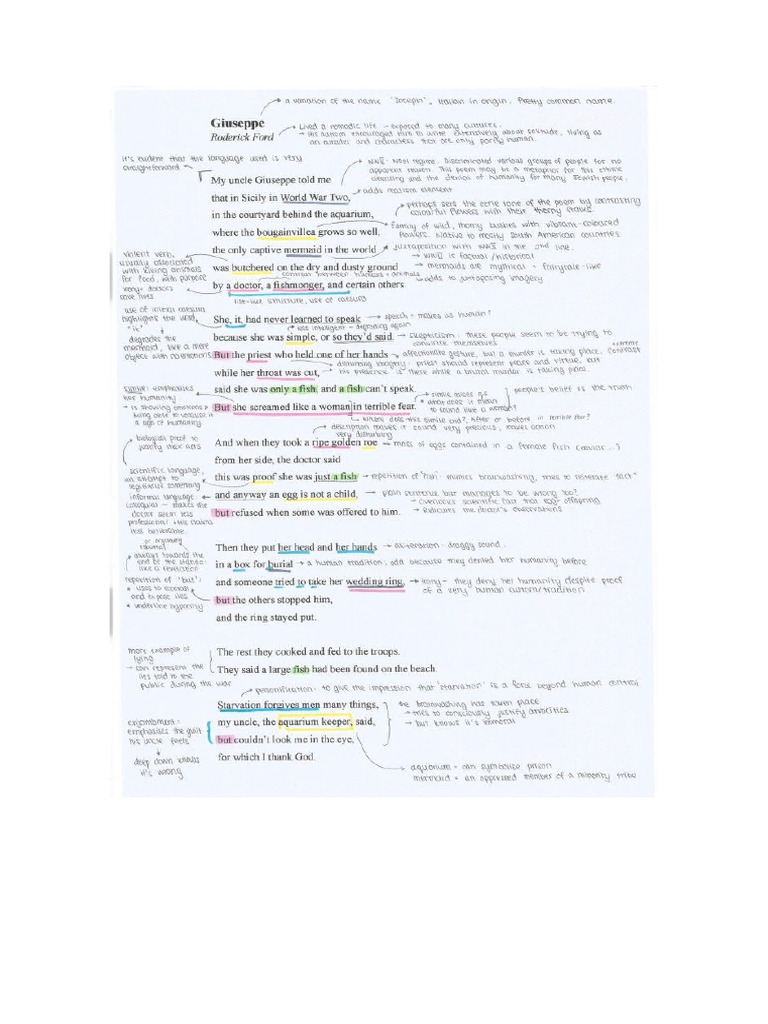 a variation of the name 'Joseph', Italian in origin. Pretty common name.
Giuseppe
Roderick Ford
Lived a nomadic life - exposed to many cultures.
His autism encouraged him to write extensively about solitude, living as
an outsider and characters that are only partly human.
it's evident that the language used is very
straightforward
WWII: Nazi regime. Discriminated various groups of people for no
apparent reason. This poem may be a metaphor for this ethnic
cleansing and the denial of humanity for many Jewish people.
adds realism element
My uncle Giuseppe told me
that in Sicily in World War Two,
in the courtyard behind the aquarium,
where the bougainvillea grows so well,
the only captive mermaid in the world
was butchered on the dry and dusty ground
by a doctor, a fishmonger, and certain others.
perhaps sets the eerie tone of the poem by contrasting
colourful flowers with their thorny stalks.
family of wild, thorny bushes with vibrant-coloured
flowers. Native to mostly South American countries
juxtaposition with WWII in the 2nd line.
WWII is factual/historical
mermaids are mythical + fairytale-like
adds to juxtaposing imagery
violent verb,
usually associated
with killing animals
for food with purpose
irony - doctors
save lives
common between humans + animals
list-like structure, use of caesura
use of initial caesura
highlights the word,
"it"
degrades the
mermaid, like a mere
object with no emotions
She, it, had never learned to speak
because she was simple, or so they'd said.
But the priest who held one of her hands
while her throat was cut,
said she was only a fish, and a fish can't speak.
But she screamed like a woman in terrible fear.
speech = makes us human?
less intelligent - degrading again
skepticism: these people seem to be trying to
convince themselves
affectionate gesture, but a murder is taking place.
contrast
disturbing imagery: priest should represent peace and virtue, but
his presence is there while a brutal murder is taking place
simile: emphasises
her humanity
is showing emotions
a sign of humanity
simile
what does it mean
to sound like a woman?
people's belief is the truth
where does this simile end? After or before in terrible fear?
description makes it sound very precious, makes action
very disturbing
biological proof to
justify their acts
And when they took a ripe golden roe
from her side, the doctor said
this was proof she was just a fish
and anyway an egg is not a child,
but refused when some was offered to him.
mass of eggs contained in a female fish (caviar...)
scientific language,
an attempt to
legitimise something
informal language
colloquial - makes the
doctor seem less
professional + his claims
less believable.
repetition of 'fish': mimics brainwashing, tries to reiterate "fact"
plain sentence but manages to be wrong too?
overlooks scientific fact that egg = offspring
ridicules the doctor's observations
Then they put her head and her hands
in a box for burial
and someone tried to take her wedding ring,
but the others stopped him,
and the ring stayed put.
alliteration - draggy sound.
a human tradition; odd because they denied her humanity before
irony - they deny her humanity despite proof
of a very human custom/tradition
always towards the
end of the stanza:
like a revelation
repetition of 'but':
uses to contrast
and expose lies
underline hypocrisy
more example of
lying
can represent the
lies told to the
public during the war
The rest they cooked and fed to the troops.
They said a large fish had been found on the beach.
personification: to give the impression that 'starvation' is a force beyond human control
Starvation forgives men many things,
my uncle, the aquarium keeper, said,
but couldn't look me in the eye,
for which I thank God.
the brainwashing has taken place
tries to consciously justify atrocities
but knows it's immoral
enjambment:
emphasises the guilt
his uncle feels
deep down knows
it's wrong
aquarium = can symbolise prison
mermaid = an oppressed member of a minority tribe